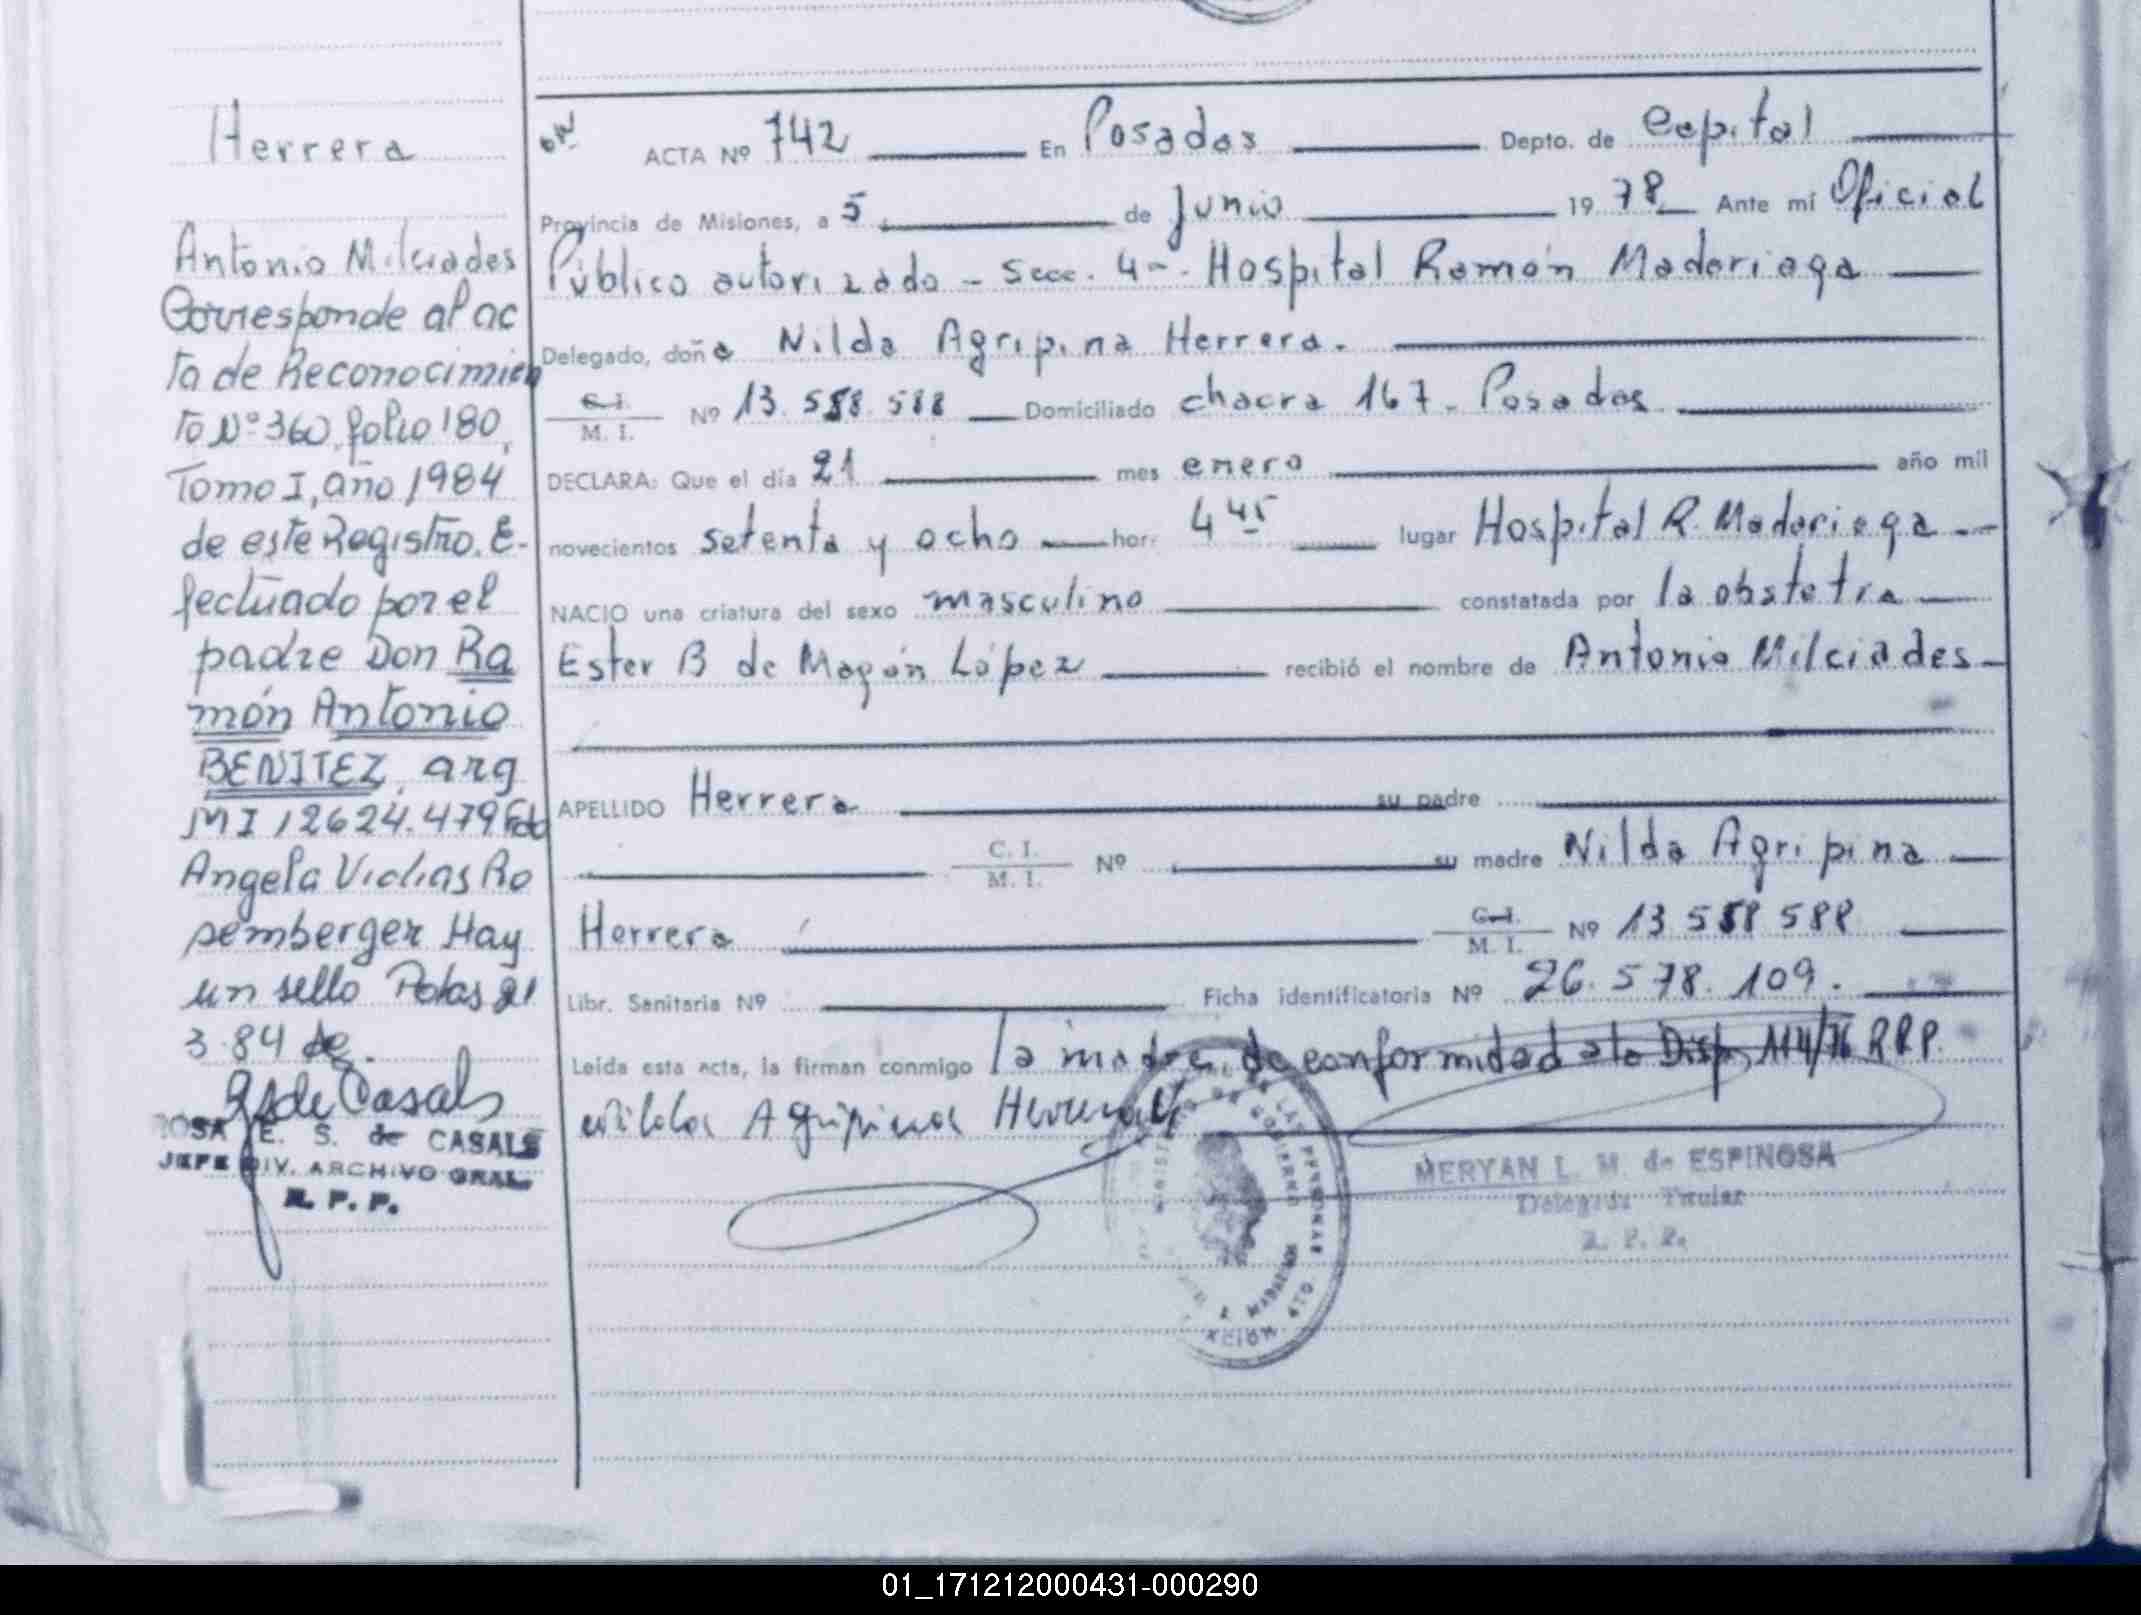 Herrera
Antonio Milciades
Corresponde al ac
ta de Reconocimien
to Nº 360, folio 180,
Tomo I, año 1984
de este Registro. E-
fectuado por el
padre Don Ra
món Antonio
BENITEZ, arg
MI 12624.479 Fdo
Angela Viclias Ro
semberger Hay
un sello Posas 21
3.84
E. S. de CASALS
JEFE DIV. ARCHIVO GRAL.
R. P. P.
ACTA Nº 742 En Posadas Depto. de Capital
Provincia de Misiones, a 5 de Junio 1978 Ante mí Oficial
Público autorizado - Secc. 4ª. Hospital Ramón Madariaga
Delegado, doña Nilda Agripina Herrera.
C. I.
M. I. Nº 13.588.588 Domiciliado chacra 167 - Posadas
DECLARA: Que el día 21 mes enero año mil
novecientos setenta y ocho hora 4 45 lugar Hospital R. Madariaga
NACIO una criatura del sexo masculino constatada por la obstetra
Ester B de Mazón López recibió el nombre de Antonio Milciades
APELLIDO Herrera su padre
C. I.
M. I. Nº su madre Nilda Agripina
Herrera C. I.
M. I. Nº 13 588 588
Libr. Sanitaria Nº Ficha identificatoria Nº 26.578.109.
Leída esta acta, la firman conmigo la madre de conformidad a la Disp. 114/76 R.P.P.
Nilda Agripina Herrera
MERYAN L. M. de ESPINOSA
Delegada Titular
R. P. P.
01_171212000431-000290